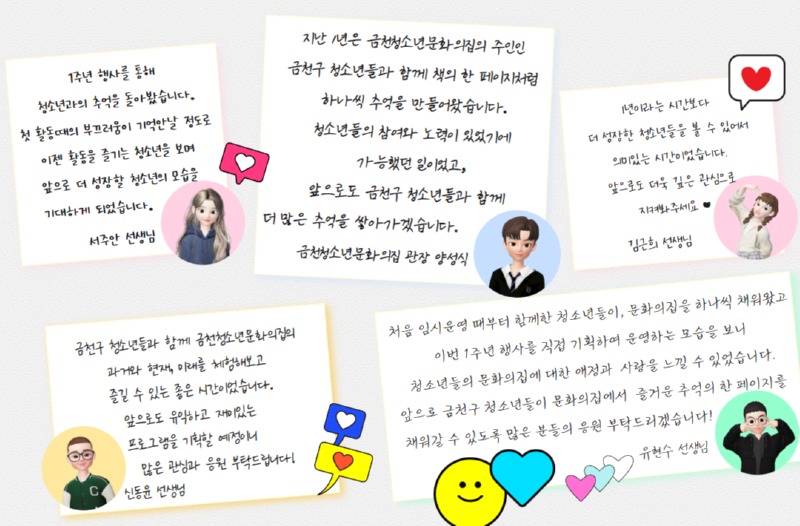 1주년 행사를 통해
청소년과의 추억을 돌아봤습니다.
첫 활동때의 부끄러움이 기억안날 정도로
이젠 활동을 즐기는 청소년을 보며
앞으로 더 성장할 청소년의 모습을
기대하게 되었습니다.
서주안 선생님
지난 1년은 금천청소년문화의집의 주인인
금천구 청소년들과 함께 책의 한 페이지처럼
하나씩 추억을 만들어왔습니다.
청소년들의 참여와 노력이 있었기에
가능했던 일이었고,
앞으로도 금천구 청소년들과 함께
더 많은 추억을 쌓아가겠습니다.
금천청소년문화의집 관장 양성식
1년이라는 시간보다
더 성장한 청소년들을 볼 수 있어서
의미있는 시간이었습니다.
앞으로도 더욱 깊은 관심으로
지켜봐주세요 ♥
김근희 선생님
금천구 청소년들과 함께 금천청소년문화의집의
과거와 현재, 미래를 체험해보고
즐길 수 있는 좋은 시간이었습니다.
앞으로도 유익하고 재미있는
프로그램을 기획할 예정이니
많은 관심과 응원 부탁드립니다!
신동윤 선생님
처음 임시운영 때부터 함께한 청소년들이, 문화의집을 하나씩 채워왔고
이번 1주년 행사를 직접 기획하여 운영하는 모습을 보니
청소년들의 문화의집에 대한 애정과 사랑을 느낄 수 있었습니다.
앞으로 금천구 청소년들이 문화의집에서 즐거운 추억의 한 페이지를
채워갈 수 있도록 많은 분들의 응원 부탁드리겠습니다!
유현수 선생님
C